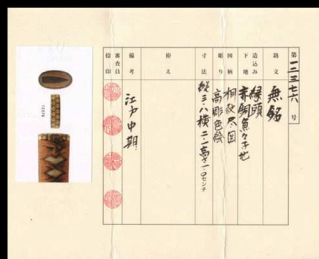 第一二三七六号
銘文
無銘
造込み
縁頭
下地
赤銅魚々子地
図柄
桐紋尽図
彫り
高彫色絵
寸法
縦三・八横二・一高さ一・〇センチ
拵え
備考
江戸中期
審査員
捺印